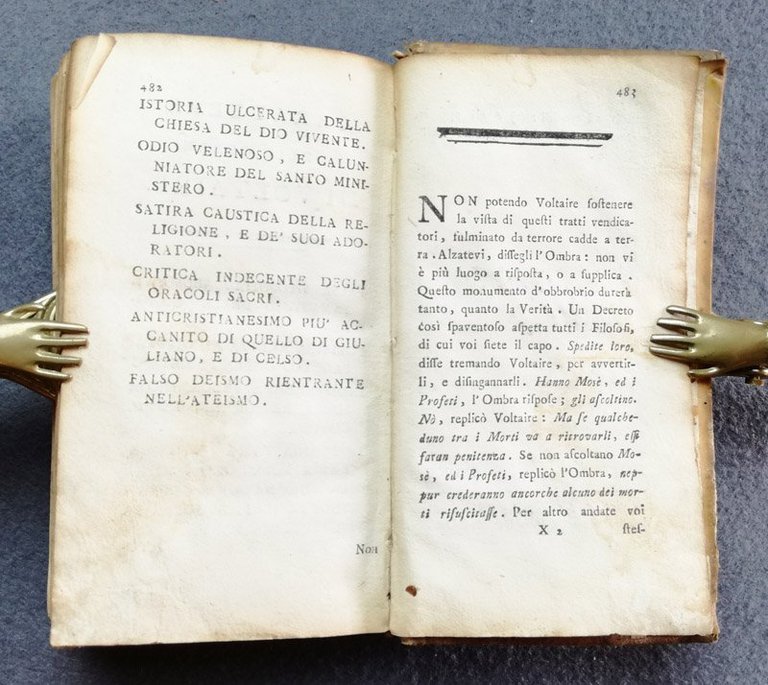 482
ISTORIA ULCERATA DELLA
CHIESA DEL DIO VIVENTE.
ODIO VELENOSO, E CALUN-
NIATORE DEL SANTO MINI-
STERO.
SATIRA CAUSTICA DELLA RE-
LIGIONE, E DE' SUOI ADO-
RATORI.
CRITICA INDECENTE DEGLI
ORACOLI SACRI.
ANTICRISTIANESIMO PIU' AC-
CANITO DI QUELLO DI GIU-
LIANO, E DI CELSO.
FALSO DEISMO RIENTRANTE
NELL'ATEISMO.
Non
483
NON potendo Voltaire ſoſtenere
la viſta di queſti tratti vendica-
tori, fulminato da terrore cadde a ter-
ra. Alzatevi, diſſegli l'Ombra: non vi
è più luogo a riſpoſta, o a ſupplica.
Queſto monumento d'obbrobrio durerà
tanto, quanto la Verità. Un Decreto
così ſpaventoſo aſpetta tutti i Filoſofi,
di cui voi ſiete il capo. Spedite loro,
diſſe tremando Voltaire, per avvertir-
li, e diſingannarli. Hanno Mosè, ed i
Profeti, l'Ombra riſpoſe; gli aſcoltino.
Nò, replicò Voltaire: Ma ſe qualche-
duno tra i Morti va a ritrovarli, eſſi
faran penitenza. Se non aſcoltano Mo-
sè, ed i Profeti, replicò l'Ombra, nep-
pur crederanno ancorche alcuno dei mor-
ti riſuſcitaſſe. Per altro andate voi
X 2
ſteſ-